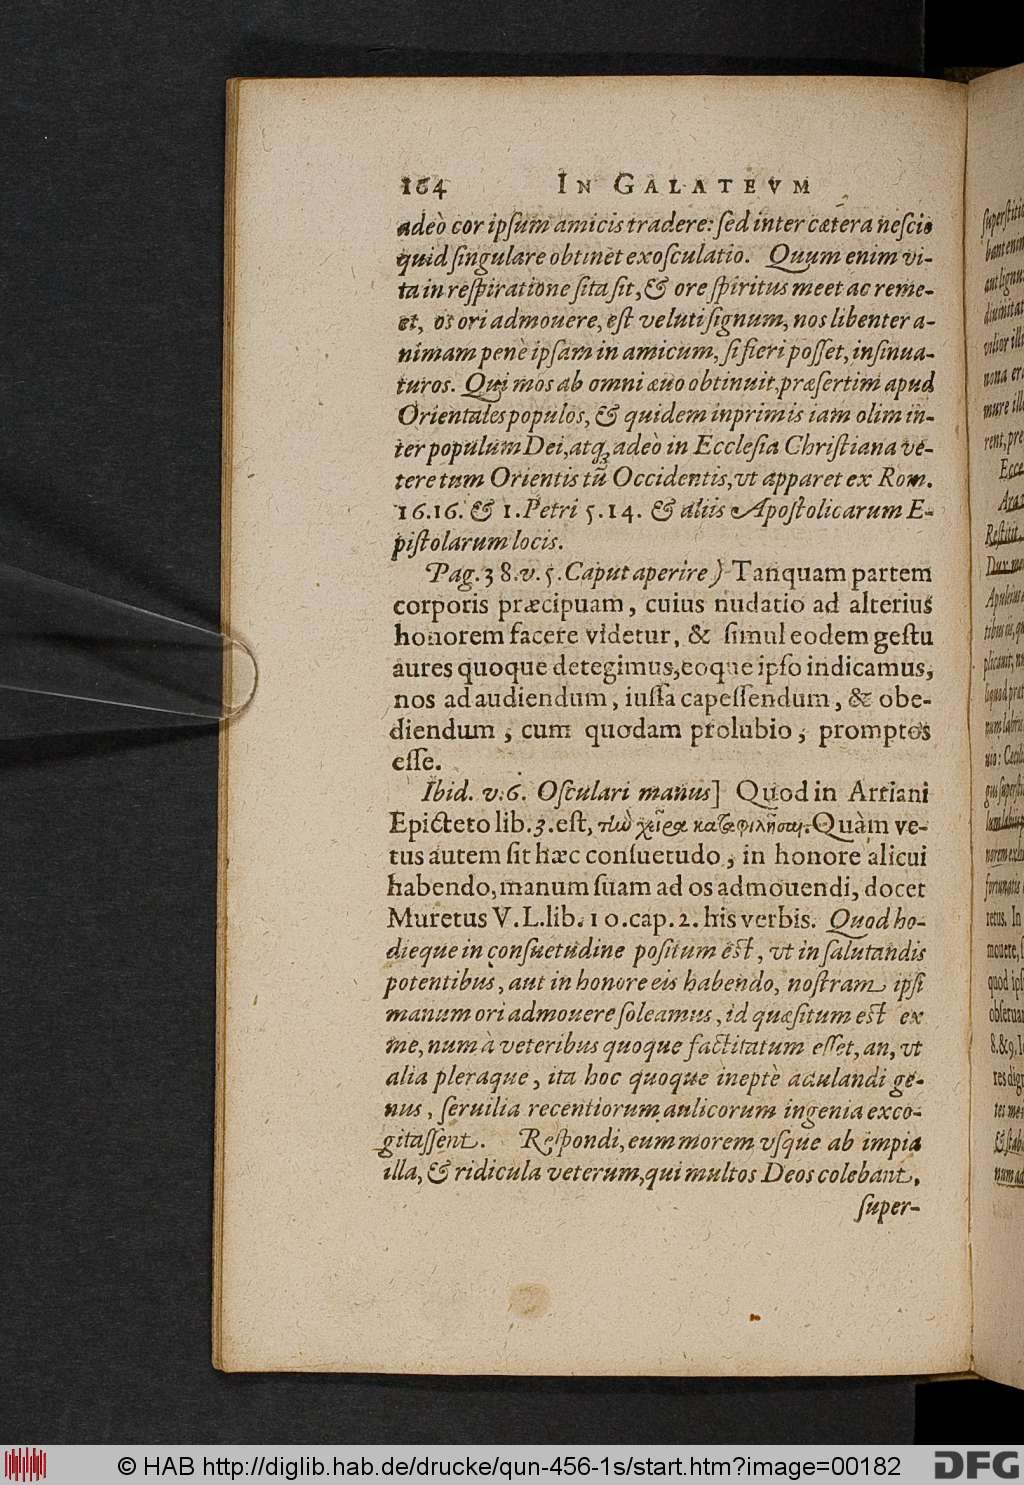 164 IN GALATEVM
adeò cor ipsum amicis tradere: sed inter cætera nescio
quid singulare obtinet exosculatio. Quum enim vi-
ta in respiratione sita sit, & ore spiritus meet ac reme-
et, os ori admouere, est veluti signum, nos libenter a-
nimam penè ipsam in amicum, si fieri posset, insinua-
turos. Qui mos ab omni æuo obtinuit, præsertim apud
Orientales populos, & quidem inprimis iam olim in-
ter populum Dei, atq; adeò in Ecclesia Christiana ve-
tere tum Orientis tũ Occidentis, vt apparet ex Rom.
16.16. & 1. Petri 5.14. & aliis Apostolicarum E-
pistolarum locis.
Pag. 38. v. 5. Caput aperire) Tanquam partem
corporis præcipuam, cuius nudatio ad alterius
honorem facere videtur, & simul eodem gestu
aures quoque detegimus, eoque ipso indicamus,
nos ad audiendum, iussa capessendum, & obe-
diendum, cum quodam prolubio, promptos
esse.
Ibid. v. 6. Osculari manus] Quod in Arriani
Epicteto lib. 3. est, τὼ χεῖρε καταφιλῆσαι. Quàm ve-
tus autem sit hæc consuetudo, in honore alicui
habendo, manum suam ad os admouendi, docet
Muretus V. L. lib. 10. cap. 2. his verbis. Quod ho-
dieque in consuetudine positum est, vt in salutandis
potentibus, aut in honore eis habendo, nostram ipsi
manum ori admouere soleamus, id quæsitum est ex
me, num à veteribus quoque factitatum esset, an, vt
alia pleraque, ita hoc quoque ineptè adulandi ge-
nus, seruilia recentiorum aulicorum ingenia exco-
gitassent. Respondi, eum morem vsque ab impia
illa, & ridicula veterum, qui multos Deos colebant,
super-
© HAB http://diglib.hab.de/drucke/qun-456-1s/start.htm?image=00182
DFG